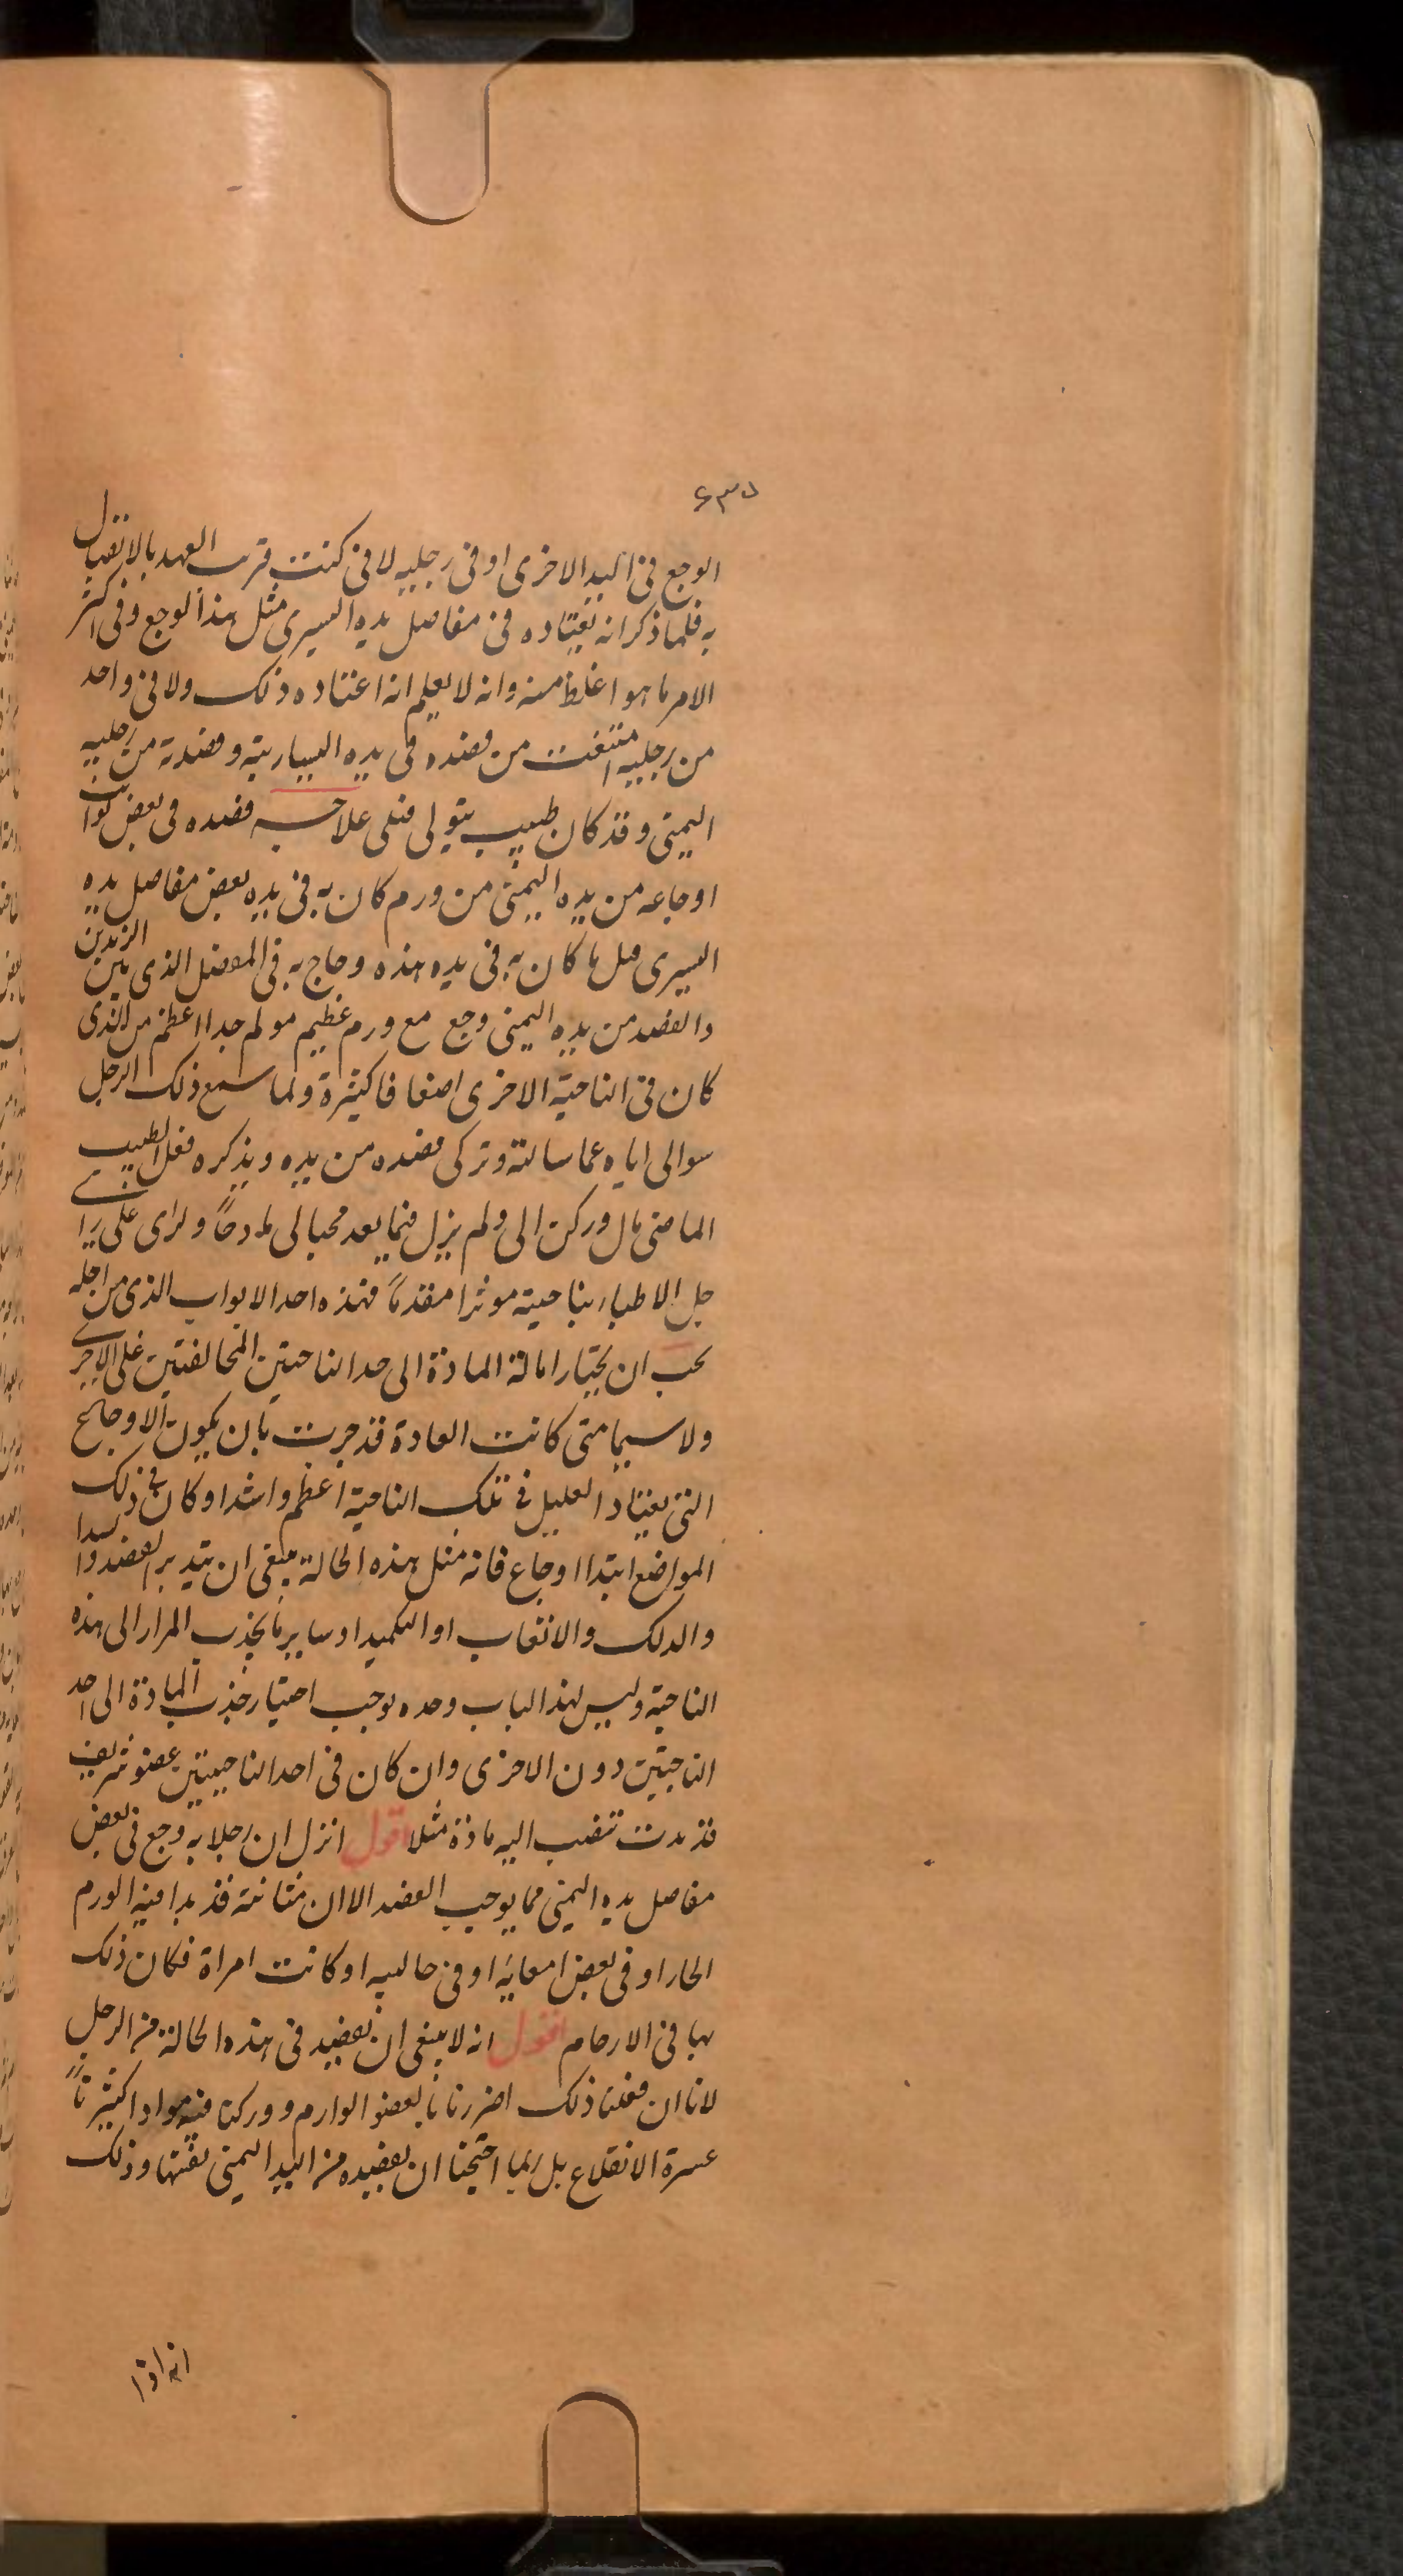 ٦٣٥
الوجع في اليد الاخرى او في رجليه لا في كنت قرب العهد بالاتصال
به فلما ذكر انه يعتاده في مفاصل يده اليسرى مثل هذا الوجع وفى اكثر
الامر ما هو اغلظ منه وانه لا يعلم انه اعتاده ذلك ولا في واحد
من رجليه امتنعت من فصده في يده اليساريته وفصدته من رجليه
اليمنى وقد كان طبيب يتولى قبلى علاجه فصده في بعض نوائب
اوجاعه من يده اليمنى من ورم كان به في يده بعض مفاصل يده
اليسرى مثل ما كان به في يده هذه وهاج به في المفصل الذى بين الزندين
والعضد من يده اليمنى وجع مع ورم عظيم مولم جدا اعظم من الذى
كان في الناحية الاخرى اضعافا كثيرة ولما سمع ذلك الرجل
سوالى اياه عما سالته وتركى فصده من يده ويذكره فعل الطبيب
الماضى مال وركن الى ولم يزل فيما بعد محبا لى مادحاً ولراى على راى
جل الاطباء بناحيته موثرا مقدماً فهذه احد الابواب الذى من اجله
يجب ان يختار امالة المادة الى احد الناحيتين المتخالفتين على الاخرى
ولا سيما متى كانت العادة قد جرت بان يكون الاوجاع
التى يعتاد العليل في تلك الناحية اعظم واشد او كان في ذلك
المواضع ابتدا اوجاع فانه مثل هذه الحالة ينبغى ان يتدبر بالفصد
والدلك والاتعاب او التكميد او ساير ما يجذب المرار الى هذه
الناحية وليس لهذا الباب وحده يوجب اختيار جذب المادة الى احد
الناحيتين دون الاخرى وان كان في احد الناحيتين عضو شريف
قد بدت تنصب اليه مادة مثلا اقول انزل ان رجلا به وجع في بعض
مفاصل يده اليمنى مما يوجب الفصد الا ان مثانته قد بدا فيه الورم
الحار او في بعض امعايه او في حالبيه او كانت امراة فكان ذلك
بها في الارحام اقول انه لا ينبغى ان يفصد في هذه الحالة من الرجل
لانا ان فعلنا ذلك اضررنا بالعضو الوارم وورکنا فيه موادا كثيرتاً
عسرة الانقلاع بل ربما احتجنا ان نفصده من اليد اليمنى نفسها وذلك
انه اذا